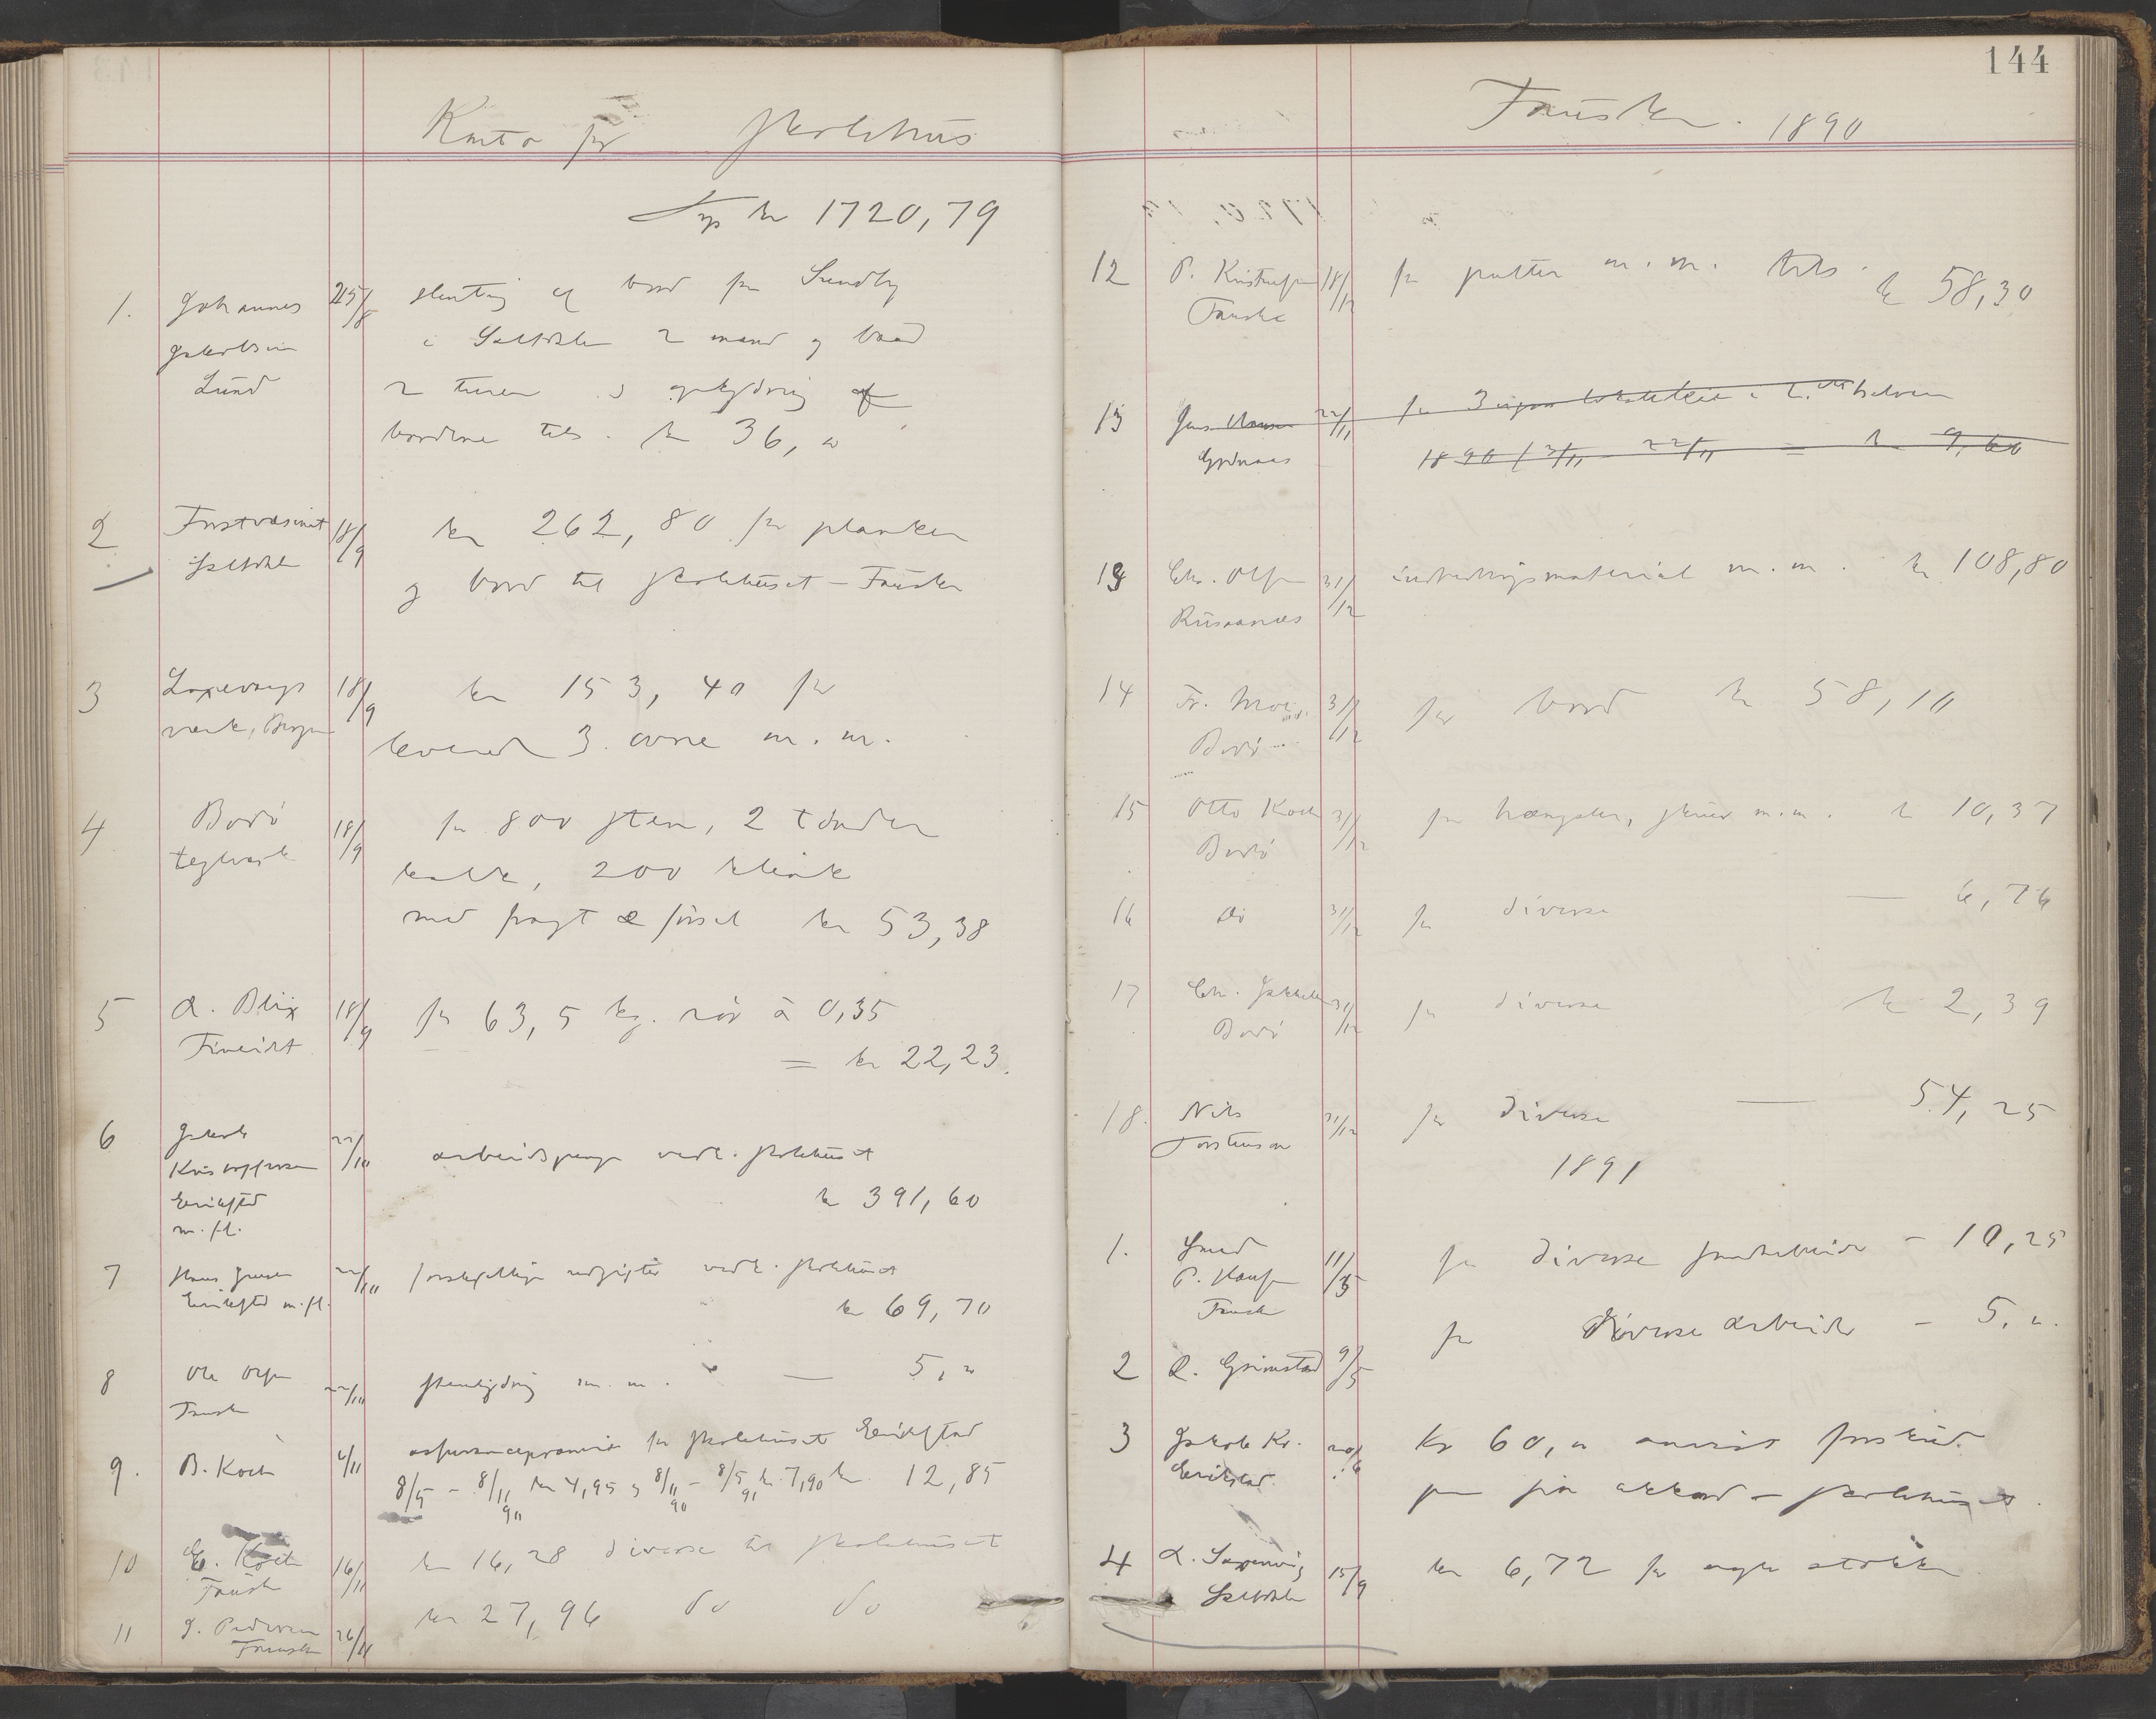 144
Konto for skolehus
Fauske. 1890
kr 1720,79
1. Johannes Jakobsen Lund 25/8 hentning af bord fra Sundby
i Saltdalen 2 mand og baad
2 turer og oplydning af
bordene tils. kr 36, "
2 Forstvæsenet Saltdalen 18/9 kr 262,80 for planker
og bord til skolehuset - Fauske
3 Laxevaags værk, Bergen 18/9 kr 153,40 for
levered 3 ovne m. m.
4 Bodö teglværk 18/9 for 800 sten, 2 tönder
kalk, 200 klink
med fragt & försel kr 53,38
5 A. Blix Fineidet 18/9 for 63,5 kg. rör à 0,35
= kr 22,23.
6 Jakob Kristoffersen Erikstad m. fl. 22/10 arbeidspenge vedk. skolehuset
kr 391,60
7 Hans Jensen Erikstad m. fl. 22/10 forskjellige udgifter vedk. skolehuset
kr 69,70
8 Ole Olsen Fauske 22/10 m. m. — 5, "
9. B. Koch 4/11 assurancepræmie for skolehuset Erikstad
8/5 - 8/11 90 kr 4,95 og 8/11 90 - 8/5 91 kr. 7,90 kr. 12,85
10 E. Koch Fauske 16/11 kr 16,28 diverse til skolehuset
11 J. Pedersen Fauske 26/11 kr 27,96 do do
12 P. Kristensen Fauske 18/12 for m. m. tils. kr 58,30
13 Jens Hansen 22/11 for 3 ugers i 2. halvaar
1890 (3/11 - 22/11 = kr 9,60
13 Chr. Olsen Riisaanæs 31/12 indredningsmaterial m. m. kr 108,80
14 Fr. Moe Bodö 31/12 for bord kr 58,10
15 Otto Koch Bodö 31/12 for hængsler, skruer m.m. kr 10,37
16 do 31/12 for diverse — 6,76
17 Chr. Jakhelln Bodö 31/12 for diverse kr 2,39
18. Nils Torstensen 31/12 for diverse — 54,25
1891
1. Smed P. Hansen Fauske 11/5 for diverse smedarbeide - 10,25
for diverse arbeide - 5, "
2 A. Grimstad 9/5
3 Jakob Kr. Erikstad 20/6 Kr 60, " anvist forskud
paa sin akkord - skolehuset.
4 A. Saxenvig Saltdalen 15/9 kr 6,72 for stokke